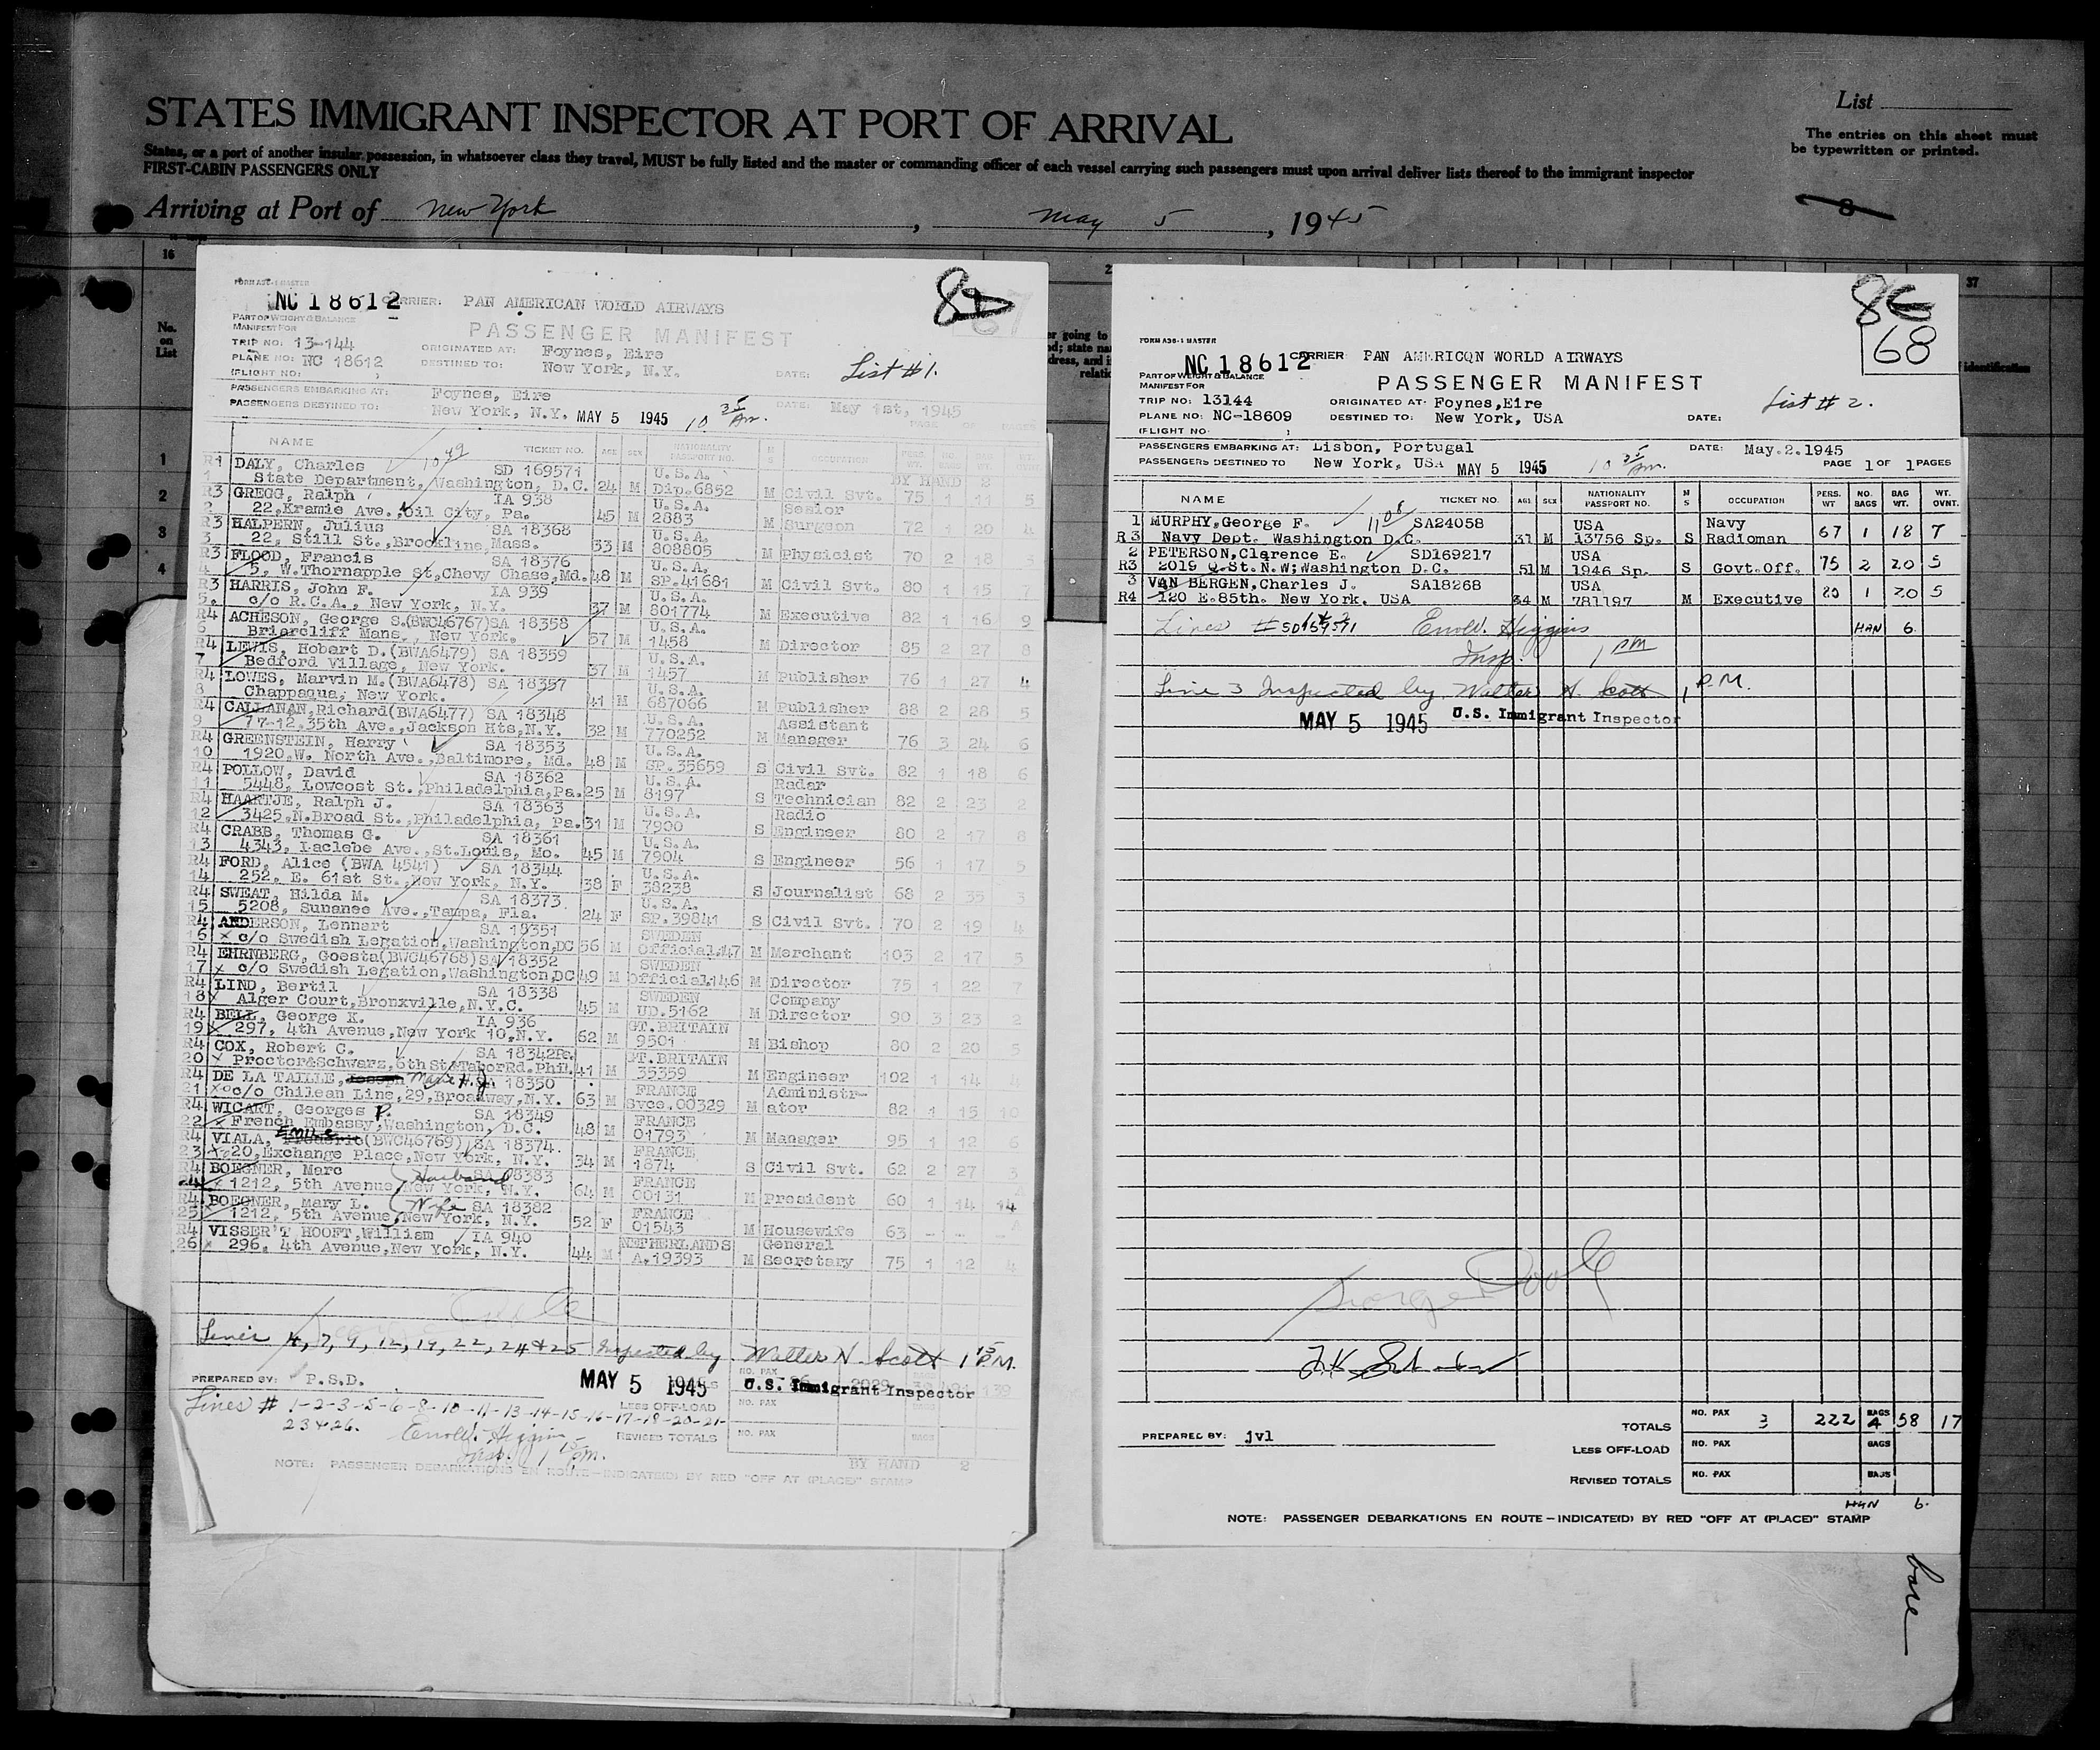 STATES IMMIGRANT INSPECTOR AT PORT OF ARRIVAL
States, or a port of another insular possession, in whatsoever class they travel, MUST be fully listed and the master or commanding officer of each vessel carrying such passengers must upon arrival deliver lists thereof to the immigrant inspector
FIRST-CABIN PASSENGERS ONLY
List
The entries on this sheet must
be typewritten or printed.
Arriving at Port of New York, May 5, 1945
8
16
37
No.
on
List
identification
1
2
3
4
FORM A36-1 MASTER
NC 18612 CARRIER: PAN AMERICAN WORLD AIRWAYS
PART OF WEIGHT & BALANCE
MANIFEST FOR
PASSENGER MANIFEST
TRIP NO: 13-144 ORIGINATED AT: Foynes, Eire
PLANE NO: NC 18612 DESTINED TO: New York, N.Y. DATE: List #1.
(FLIGHT NO:
PASSENGERS EMBARKING AT: Foynes, Eire
PASSENGERS DESTINED TO: New York, N.Y. MAY 5 1945 10 35 Am. DATE: May 1st, 1945
PAGE OF PAGES
NAME TICKET NO. AGE SEX NATIONALITY PASSPORT NO. M S OCCUPATION PERS. WT. NO. BAGS BAG WT. WT. OVNT.
BY HAND 2
R4 DALY, Charles SD 169571 U.S.A.
1 State Department, Washington, D.C. 24 M Dip.6852 M Civil Svt. 75 1 11 5
R3 GREGG, Ralph IA 938 U.S.A. Senior
2 22, Kramie Ave., Oil City, Pa. 45 M 2883 M Surgeon 72 1 20 4
R3 HALPERN, Julius SA 18368 U.S.A.
3 22, Still St., Brookline, Mass. 33 M 808805 M Physicist 70 2 18 3
R3 FLOOD, Francis SA 18376 U.S.A.
4 5, W.Thornapple St, Chevy Chase, Md. 48 M SP.41681 M Civil Svt. 80 1 15 7
R3 HARRIS, John F. IA 939 U.S.A.
5. c/o R.C.A., New York, N.Y. 37 M 801774 M Executive 82 1 16 9
R4 ACHESON, George S.(BWC46767)SA 18358 U.S.A.
6 Briarcliff Mans., New York. 57 M 1458 M Director 85 2 27 8
R4 LEWIS, Hobart D.(BWA6479) SA 18359 U.S.A.
7 Bedford Village, New York. 37 M 1457 M Publisher 76 1 27 4
R4 LOWES, Marvin M.(BWA6478) SA 18357 U.S.A.
8 Chappaqua, New York. 41 M 687066 M Publisher 88 2 28 5
R4 CALLANAN, Richard(BWA6477) SA 18348 U.S.A. Assistant
9 77-12.35th Ave., Jackson Hts, N.Y. 32 M 770252 M Manager 76 3 24 6
R4 GREENSTEIN, Harry SA 18353 U.S.A.
10 1920.W. North Ave., Baltimore, Md. 48 M SP.35659 S Civil Svt. 82 1 18 6
R4 POLLOW, David SA 18362 U.S.A. Radar
11 5448, Lowcost St., Philadelphia, Pa. 25 M 8197 S Technician 82 2 23 2
R4 HAANTJE, Ralph J. SA 18363 U.S.A. Radio
12 3425.N.Broad St., Philadelphia, Pa. 31 M 7900 S Engineer 80 2 17 8
R4 CRABB, Thomas G. SA 18361 U.S.A.
13 4343, Laclebe Ave., St.Louis, Mo. 45 M 7904 S Engineer 56 1 17 5
R4 FORD, Alice (BWA 4541) SA 18344 U.S.A.
14 252, E. 61st St., New York, N.Y. 38 F 38238 S Journalist 68 2 35
R4 SWEAT, Hilda M. SA 18373. U.S.A.
15 5208, Sunanee Ave., Tampa, Fla. 24 F SP.39841 S Civil Svt. 70 2 19 4
R4 ANDERSON, Lennart SA 18351 SWEDEN
16 x c/o Swedish Legation, Washington, DC 56 M Official.147 M Merchant 103 2 17 5
R4 EHRNBERG, Goesta(BWC46768)SA 18352 SWEDEN
17 x c/o Swedish Legation, Washington, DC 49 M Official.146 M Director 75 1 22 7
R4 LIND, Bertil SA 18338 SWEDEN Company
18 x Alger Court, Bronxville, N.Y.C. 45 M UD.5162 M Director 90 3 23 2
R4 BELL, George K. IA 936 GT.BRITAIN
19 x 297, 4th Avenue, New York 10, N.Y. 62 M 9501 M Bishop 80 2 20 5
R4 COX, Robert C. SA 18342 Pa. GT.BRITAIN
20 x Proctor&Schwarz, 6th St&TaborRd. Phil. 41 M 35359 M Engineer 102 1 14 4
R4 DE LA TAILLE, Joseph Marie H.J. SA 18350 FRANCE Administr-
21 x c/o Chilean Line, 29, Broadway, N.Y. 63 M Svce.00329 M ator 82 1 15 10
R4 WICART, Georges P. SA 18349 FRANCE
22 x French Embassy, Washington, D.C. 48 M 01793 M Manager 95 1 12 6
R4 VIALA, Emile Frederic(BWC46769) SA 18374. FRANCE
23 x 20, Exchange Place, New York, N.Y. 34 M 1874 S Civil Svt. 62 2 27 3
R4 BOEGNER, Marc Husband SA 18383 FRANCE
24 x 1212, 5th Avenue, New York, N.Y. 64 M 00131 M President 60 1 14 14
R4 BOEGNER, Mary L. Wife SA 18382 FRANCE
25 1212, 5th Avenue, New York, N.Y. 52 F 01543 M Housewife 63 - - -
R4 VISSER'T HOOFT, William IA 940 NETHERLANDS General
26 x 296, 4th Avenue, New York, N.Y. 44 M A.19393 M Secretary 75 1 12 4
Lines 4, 7, 9, 12, 19, 22, 24 + 25 Inspected by Walter N. Scott 1 15 P.M.
PREPARED BY: P.S.D. MAY 5 1945 U.S. Immigrant Inspector
Lines # 1-2-3-5-6-8-10-11-13-14-15-16-17-18-20-21- LESS OFF-LOAD NO. PAX BAGS
23 + 26. Enold. Higgins REVISED TOTALS NO. PAX BAGS
Insp. 1 15 Pm.
BY HAND 2
NOTE: PASSENGER DEBARKATIONS EN ROUTE—INDICATE(D) BY RED "OFF AT (PLACE)" STAMP
68
FORM A36-1 MASTER
NC 18612 CARRIER: PAN AMERICQN WORLD AIRWAYS
PART OF WEIGHT & BALANCE
MANIFEST FOR
PASSENGER MANIFEST
TRIP NO: 13144 ORIGINATED AT: Foynes, Eire
PLANE NO: NC-18609 DESTINED TO: New York, USA DATE: List # 2.
(FLIGHT NO )
PASSENGERS EMBARKING AT: Lisbon, Portugal DATE: May.2.1945
PASSENGERS DESTINED TO New York, USA MAY 5 1945 10 35 Am. PAGE 1 OF 1 PAGES
NAME TICKET NO. AGE SEX NATIONALITY PASSPORT NO. M S OCCUPATION PERS. WT NO. BAGS BAG WT. WT. OVNT.
1 MURPHY, George F. 11 08 SA24058 USA Navy
R3 Navy Dept. Washington D.C. 37 M 13756 Sp. S Radioman 67 1 18 7
2 PETERSON, Clarence E. SD169217 USA
R3 2019 Q.St. N.W; Washington D.C. 51 M 1946 Sp. S Govt.Off. 75 2 20 5
3 VAN BERGEN, Charles J. SA18268 USA
R4 120 E.85th. New York. USA 34 M 781197 M Executive 80 1 20 5
Lines Enold. Higgins HAN 6
Insp. 1 PM
Line 3 Inspected by Walter N. Scott 1 P.M.
MAY 5 1945 U.S. Immigrant Inspector
TOTALS NO. PAX 3 222 BAGS 4 58 17
PREPARED BY: jvl LESS OFF-LOAD NO. PAX BAGS
REVISED TOTALS NO. PAX BAGS
HAN 6.
NOTE: PASSENGER DEBARKATIONS EN ROUTE—INDICATE(D) BY RED "OFF AT (PLACE)" STAMP